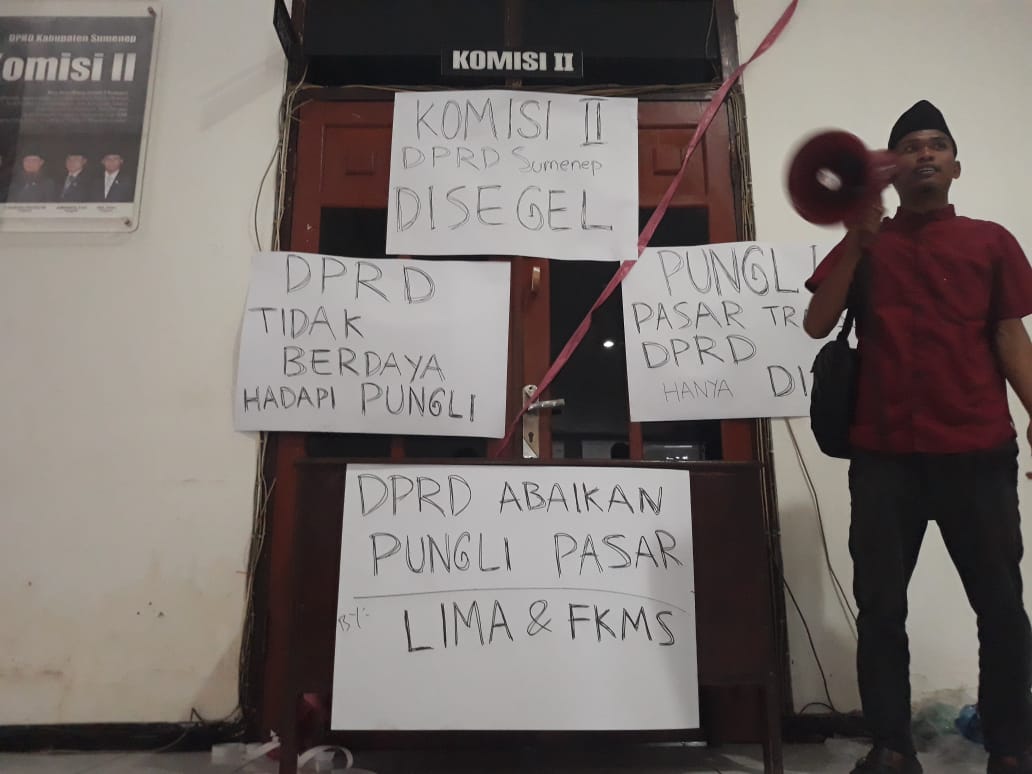 DPRD Kabupaten Sumenep
Komisi II
KOMISI II
KOMISI II
DPRD Sumenep
DISEGEL
DPRD
TIDAK
BERDAYA
HADAPI PUNGLI
PUNGLI
PASAR
DPRD
HANYA
DPRD ABAIKAN
PUNGLI PASAR
BY:
LIMA & FKMS